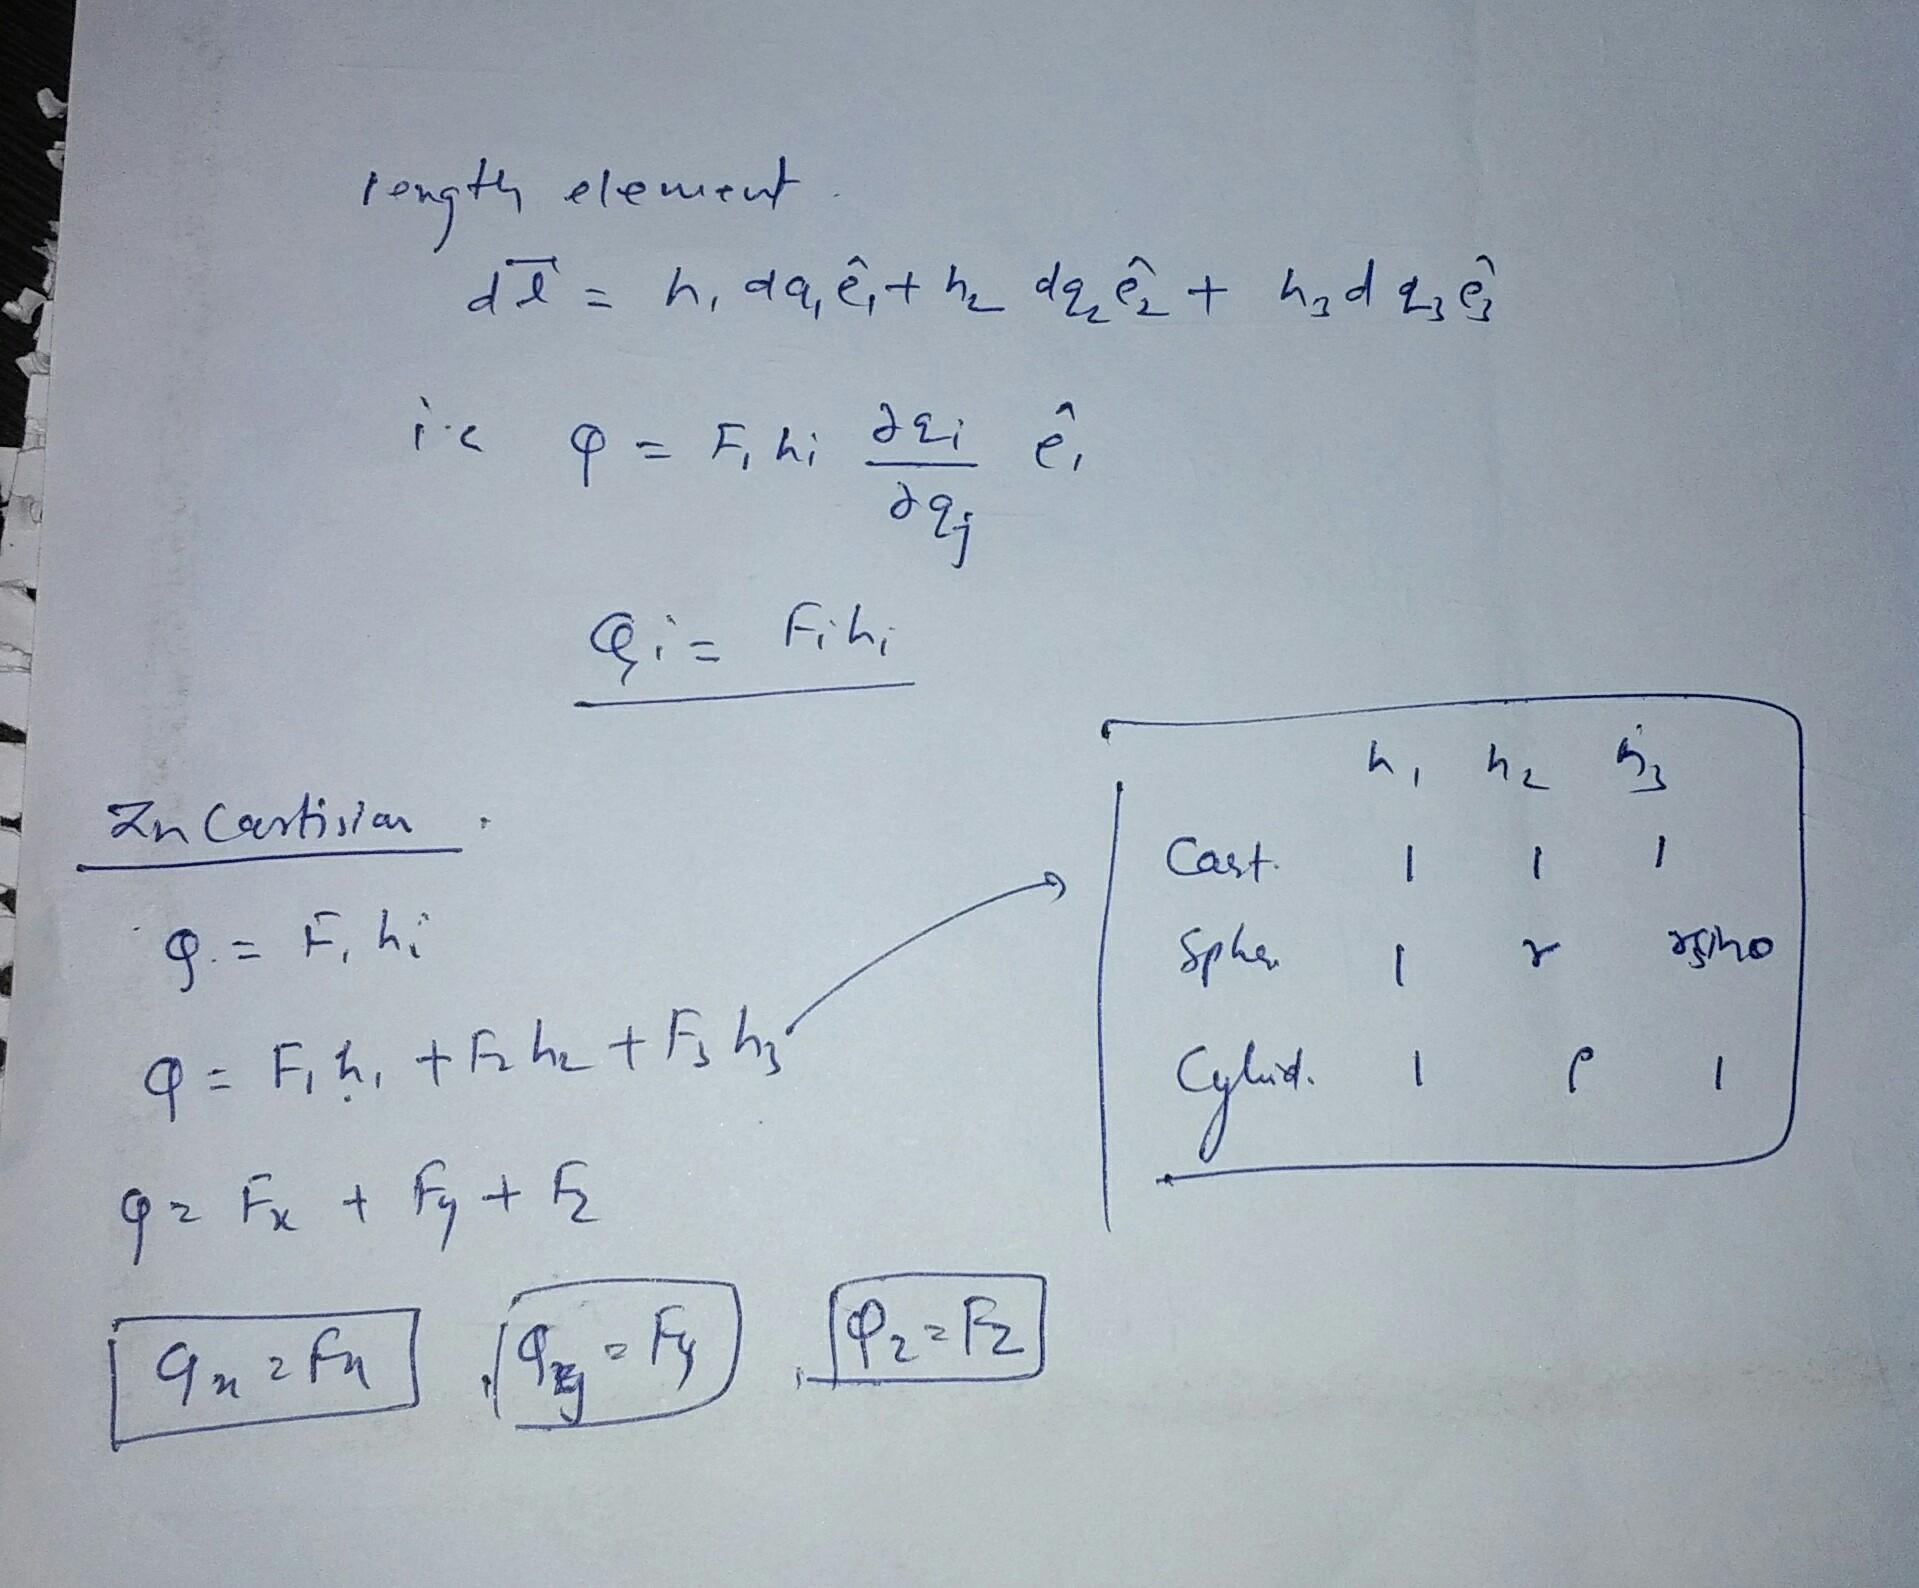 length element.
dl⃗ = h₁ dq₁ ê₁ + h₂ dq₂ ê₂ + h₃ dq₃ ê₃
i.e Q = Fᵢ hᵢ ∂qᵢ/∂qⱼ êᵢ
Qᵢ = Fᵢhᵢ
In Cartisian.
Q = Fᵢ hᵢ
Q = F₁h₁ + F₂h₂ + F₃h₃
Q = Fx + Fy + Fz
Qx = Fx, Qy = Fy, Qz = Fz
h₁ h₂ h₃
Cart. 1 1 1
Spher 1 r rsinθ
Cylind. 1 ρ 1